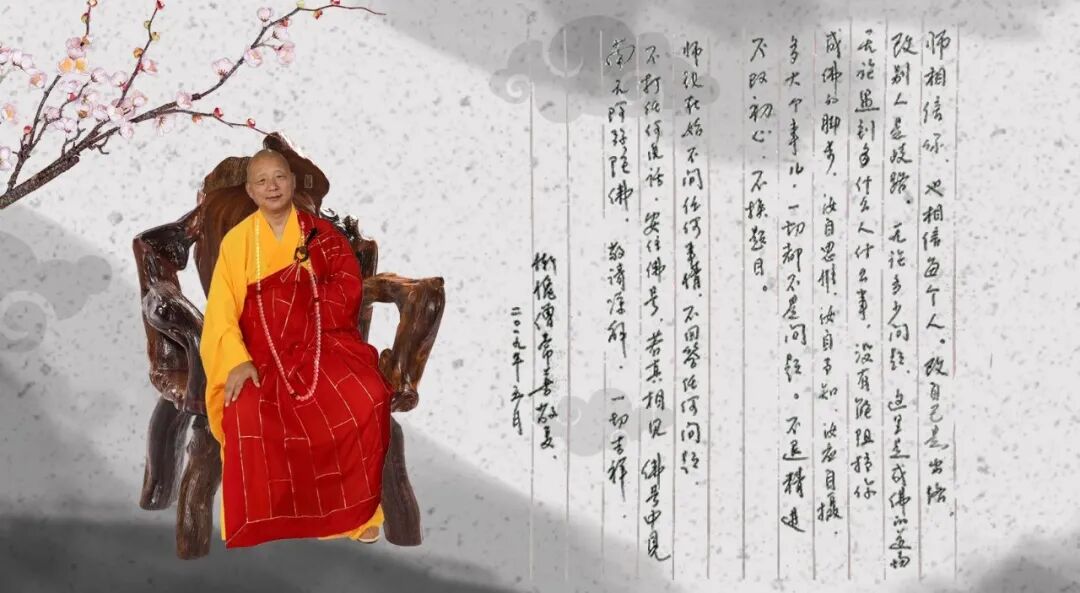 师相信你、也相信每个人。改自己是出路、
改别人是歧路。无论多少问题 这里是成佛的道场
无论遇到多什么人什么事,没有能阻挡你
成佛的脚步,汝自思惟、汝自知、汝应自摄、
多大个事儿.一切都不是问题。不退精进
不改初心.不换题目。
师现在始不问任何事情.不回答任何问题.
不打任何话.安住佛号.若真相见 佛号中见
南无阿弥陀佛. 敬请谅解. 一切吉祥.
惭愧僧常喜敬复、
二〇一九年五月